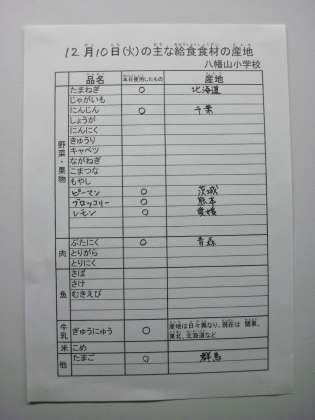 12月10日(火)の主な給食食材の産地
八幡山小学校
品名 本日使用したもの 産地
野菜・果物
たまねぎ ○ 北海道
じゃがいも
にんじん ○ 千葉
しょうが
にんにく
きゅうり
キャベツ
ながねぎ
こまつな
もやし
ピーマン ○ 茨城
ブロッコリー ○ 熊本
レモン ○ 愛媛
肉
ぶたにく ○ 青森
とりがら
とりにく
魚
さば
さけ
むきえび
牛乳 ぎゅうにゅう ○ 産地は日々異なり、現在は 関東、
東北、北海道など
米 こめ
他 たまご ○ 群馬